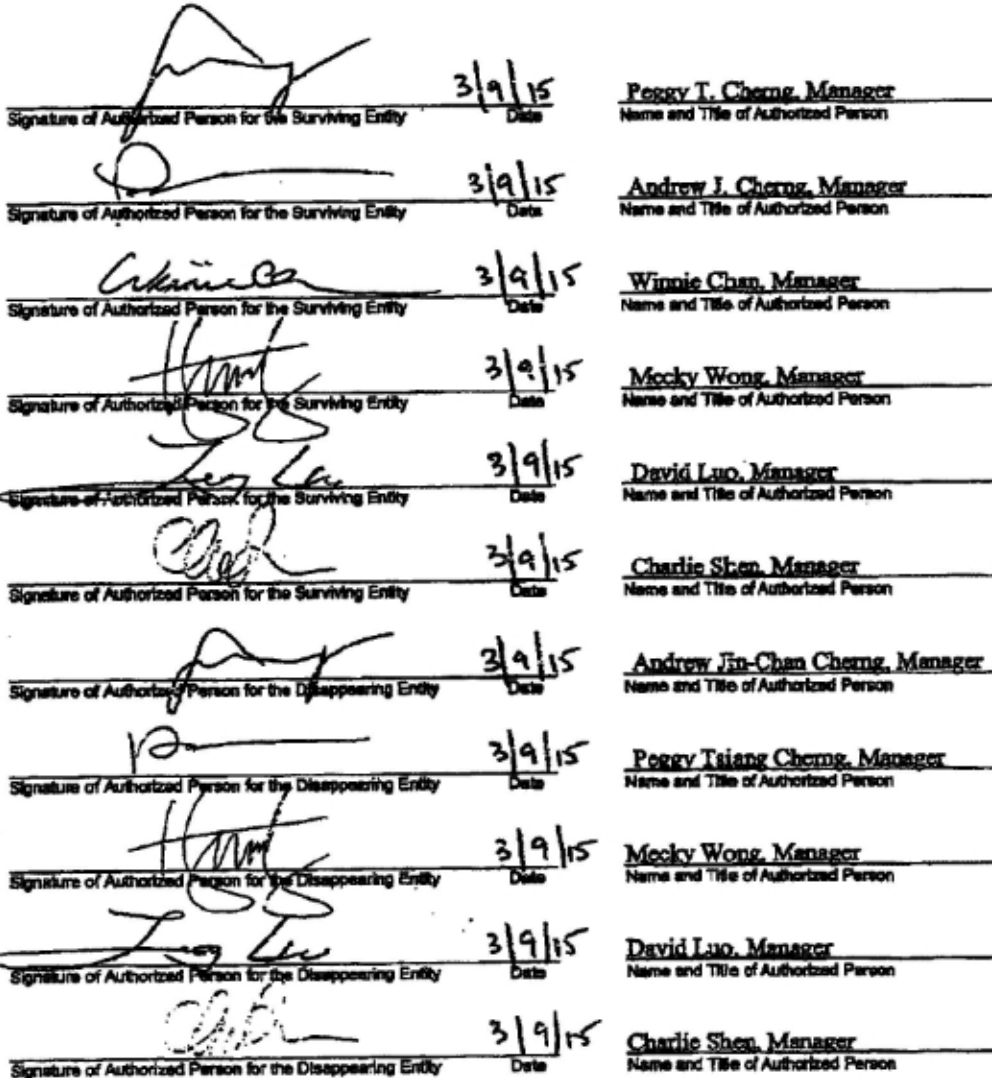 3/9/15 Peggy T. Cherng, Manager
Signature of Authorized Person for the Surviving Entity Date Name and Title of Authorized Person
3/9/15 Andrew J. Cherng, Manager
Signature of Authorized Person for the Surviving Entity Date Name and Title of Authorized Person
3/9/15 Winnie Chan, Manager
Signature of Authorized Person for the Surviving Entity Date Name and Title of Authorized Person
3/9/15 Mecky Wong, Manager
Signature of Authorized Person for the Surviving Entity Date Name and Title of Authorized Person
3/9/15 David Luo, Manager
Signature of Authorized Person for the Surviving Entity Date Name and Title of Authorized Person
3/9/15 Charlie Shen, Manager
Signature of Authorized Person for the Surviving Entity Date Name and Title of Authorized Person
3/9/15 Andrew Jin-Chan Cherng, Manager
Signature of Authorized Person for the Disappearing Entity Date Name and Title of Authorized Person
3/9/15 Peggy Tsiang Cherng, Manager
Signature of Authorized Person for the Disappearing Entity Date Name and Title of Authorized Person
3/9/15 Mecky Wong, Manager
Signature of Authorized Person for the Disappearing Entity Date Name and Title of Authorized Person
3/9/15 David Luo, Manager
Signature of Authorized Person for the Disappearing Entity Date Name and Title of Authorized Person
3/9/15 Charlie Shen, Manager
Signature of Authorized Person for the Disappearing Entity Date Name and Title of Authorized Person